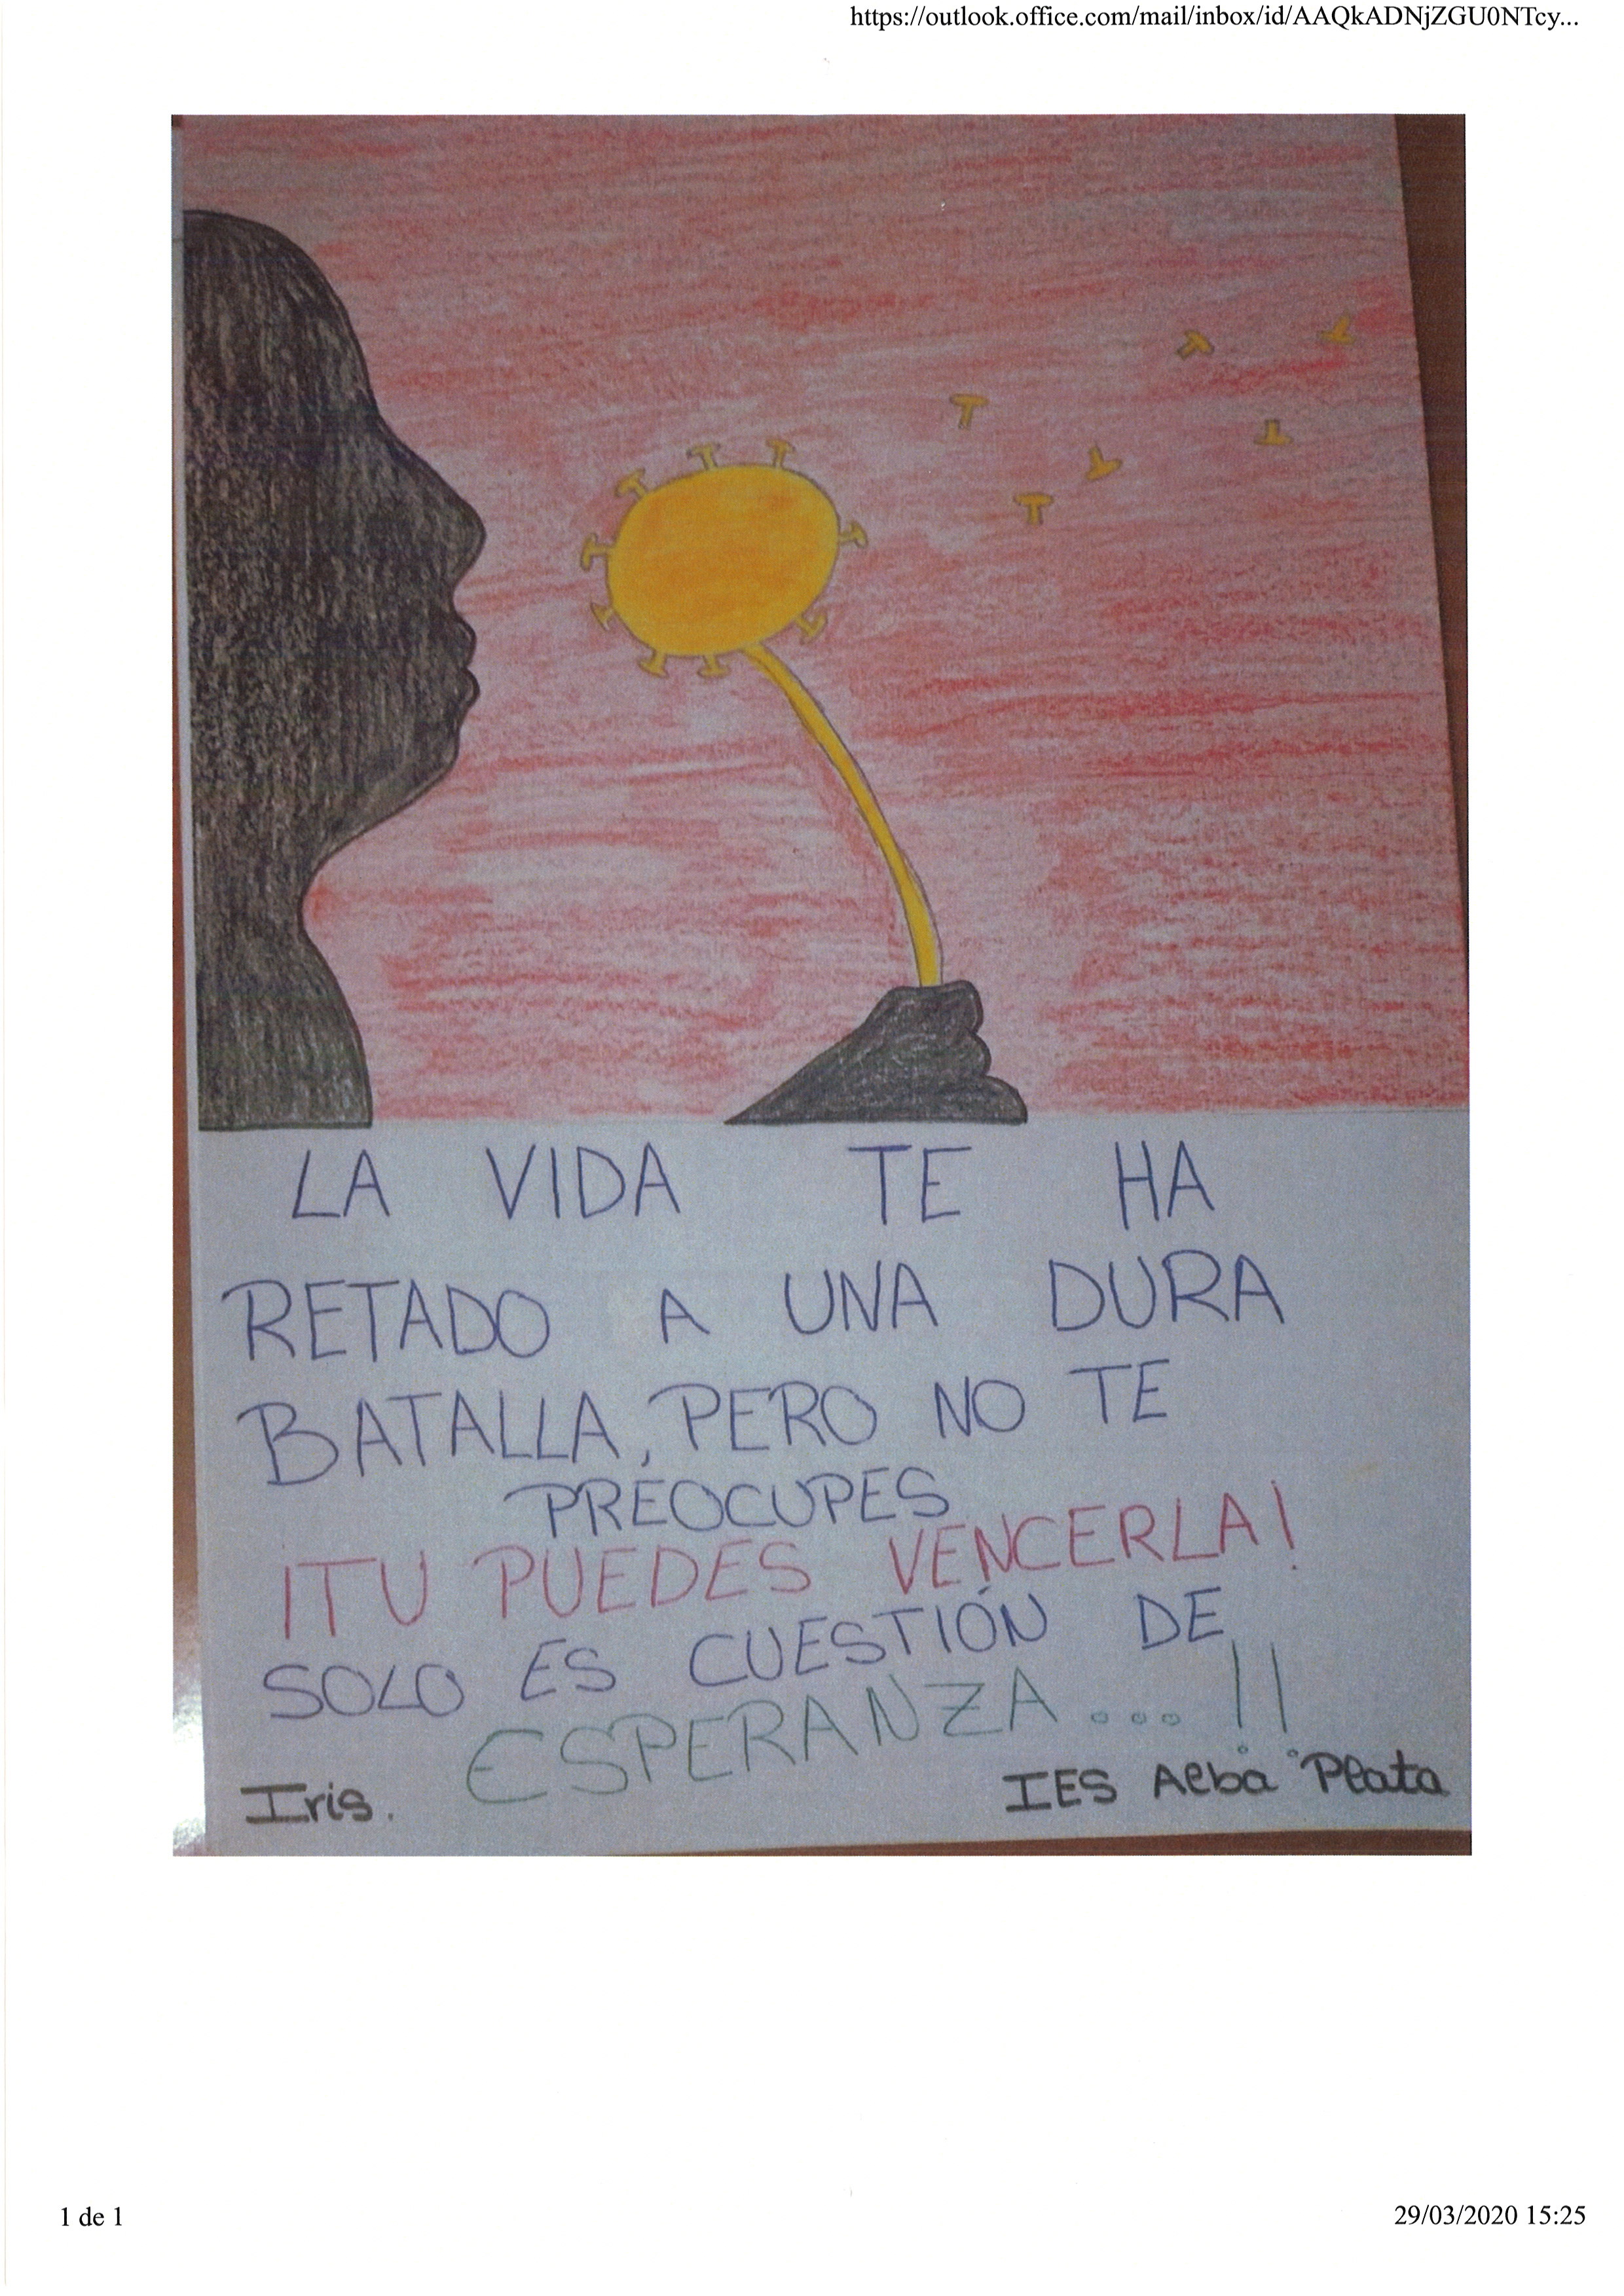 https://outlook.office.com/mail/inbox/id/AAQkADNjZGU0NTcy...
LA VIDA TE HA
RETADO A UNA DURA
BATALLA, PERO NO TE
PREOCUPES
¡TU PUEDES VENCERLA!
SOLO ES CUESTIÓN DE
ESPERANZA...!!
Iris.
IES Alba Plata
1 de 1
29/03/2020 15:25